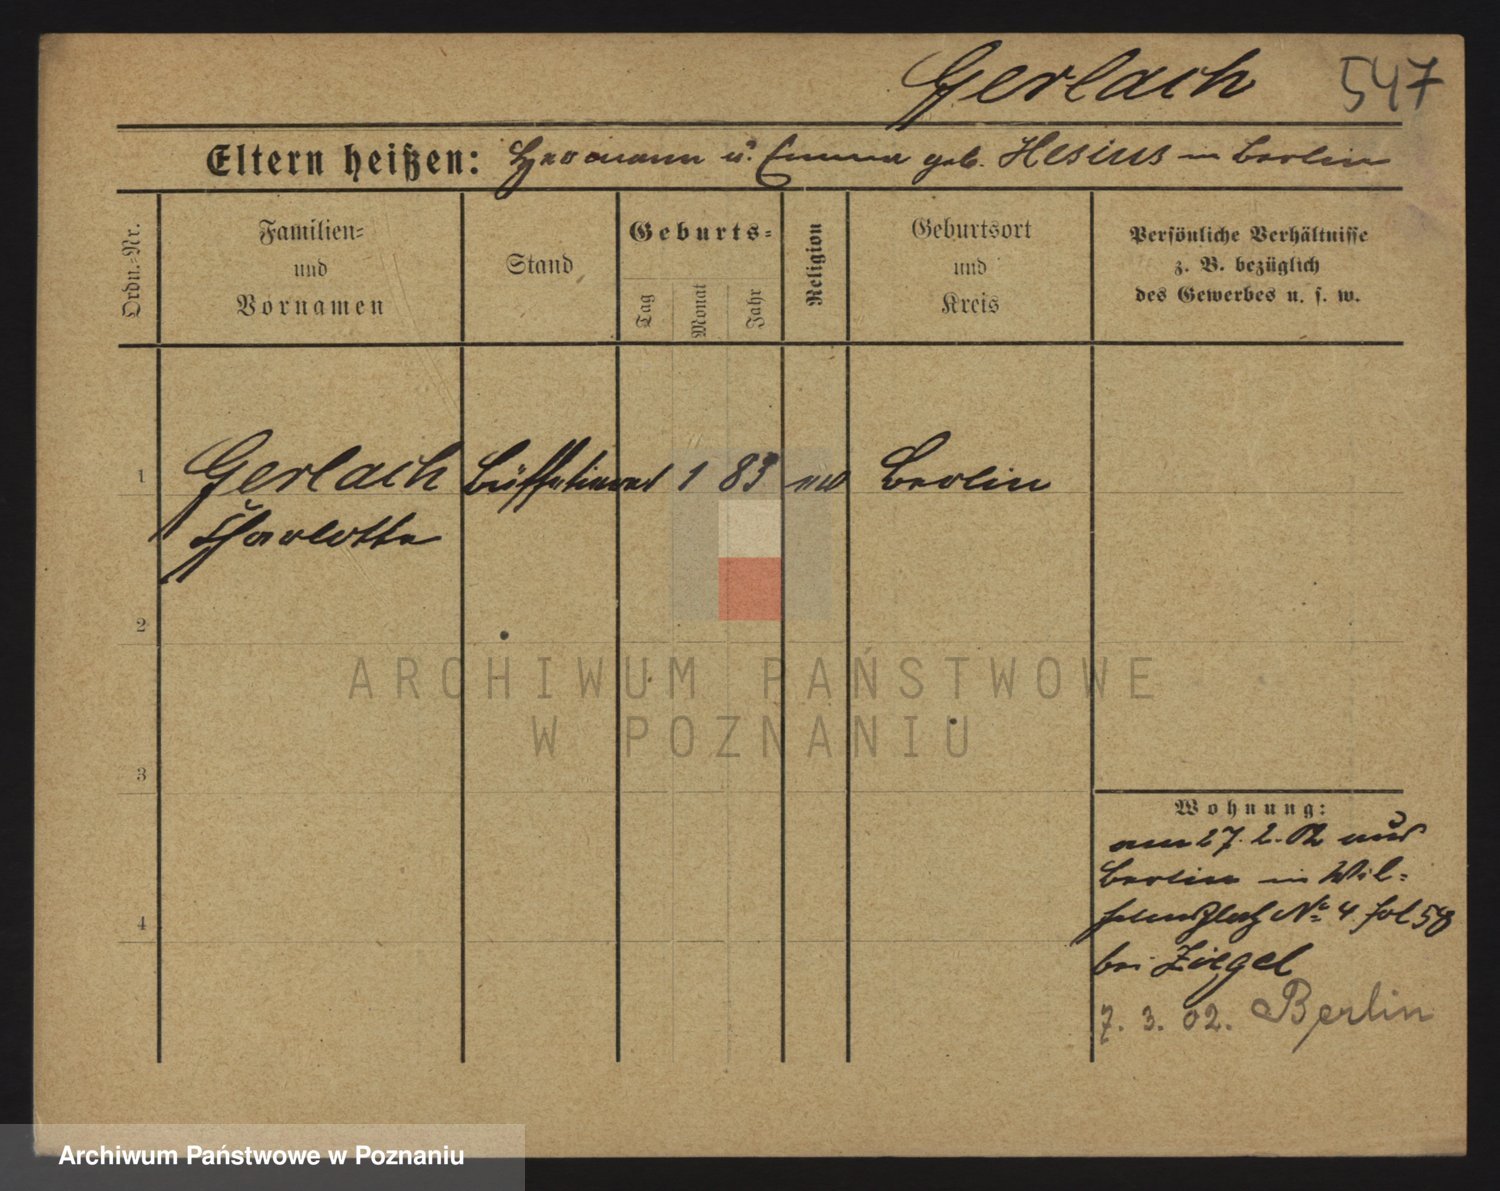 Gerlach 547
Eltern heißen: Hermann u. Emma geb. Hesius in Berlin
Ordn.-Nr.
Familien- und Vornamen
Stand
Geburts-
Tag
Monat
Jahr
Religion
Geburtsort und Kreis
Persönliche Verhältnisse
z. B. bezüglich
des Gewerbes u. s. w.
1 Gerlach 1 83 Berlin
Charlotte
2
ARCHIWUM PAŃSTWOWE
W POZNANIU
3
Wohnung:
am 27. 2. 02 aus
Berlin in Wil-
4
helmsplatz No 4 fol 58
bei Ziegel
7. 3. 02. Berlin
Archiwum Państwowe w Poznaniu